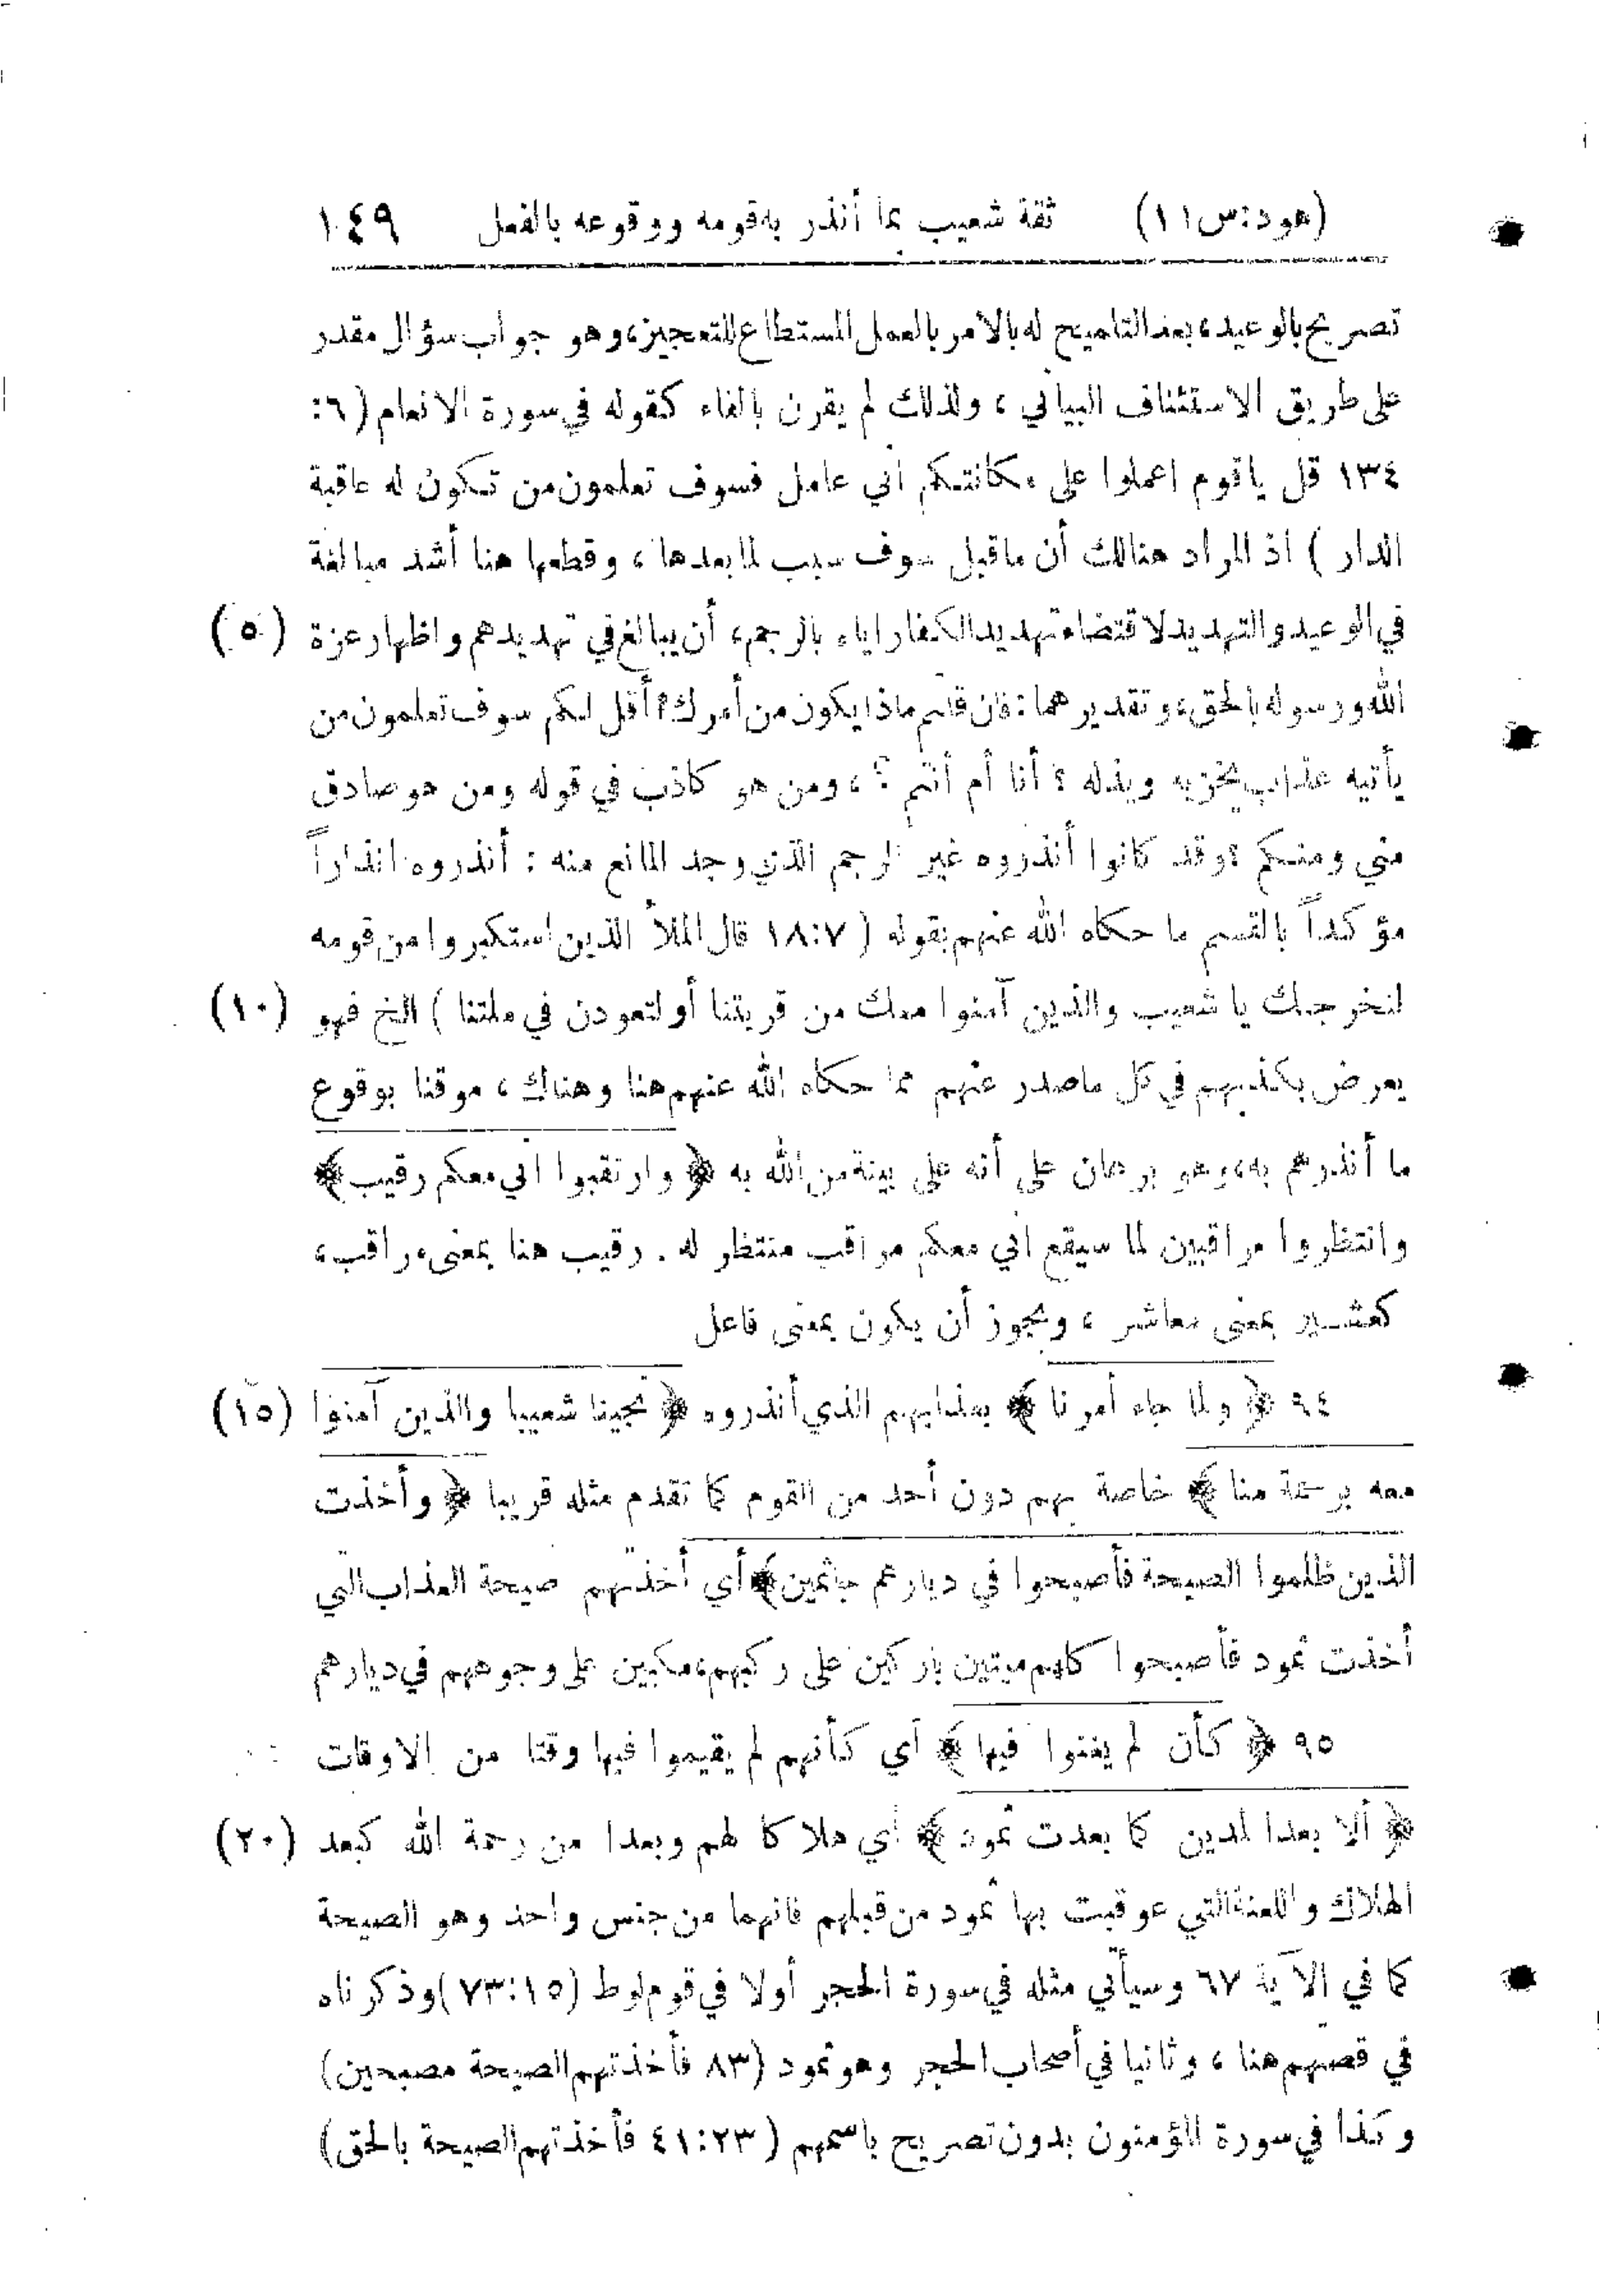 (هود:س١١) ثقة شعيب بما أنذر به قومه ووقوعه بالفعل ١٤٩
تصريح بالوعيد، بعد التلميح له بالامر بالعمل المستطاع للتعجيز، وهو جواب سؤال مقدر
على طريق الاستئناف البياني، ولذلك لم يقرن بالفاء كقوله في سورة الانعام (٦:
١٣٤ قل ياقوم اعملوا على مكانتكم اني عامل فسوف تعلمون من تكون له عاقبة
الدار) اذ المراد هنالك أن ماقبل سوف سبب لما بعدها، وقطعها هنا أشد مبالغة
في الوعيد والتهديد لاقتضاء تهديد الكفار اياه بالرجم، أن يبالغ في تهديدهم واظهار عزة (٥)
الله ورسوله بالحق، وتقديرهما: فان قلتم ماذا يكون من أمرك؟ أقل لكم سوف تعلمون من
يأتيه عذاب يخزيه ويذله ؟ أنا أم أنتم ؟، ومن هو كاذب في قوله ومن هو صادق
مني ومنكم ؟ وقد كانوا أنذروه غير الرجم الذي وجد المانع منه : أنذروه انذاراً
مؤكداً بالقسم ما حكاه الله عنهم بقوله (١٨:٧ قال الملأ الذين استكبروا من قومه
لنخرجنك يا شعيب والذين آمنوا معك من قريتنا أو لتعودن في ملتنا) الخ فهو (١٠)
يعرض بكذبهم في كل ماصدر عنهم مما حكاه الله عنهم هنا وهناك، موقنا بوقوع
ما أنذرهم به، وهو برهان على أنه على بينة من الله به ﴿وارتقبوا اني معكم رقيب﴾
وانتظروا مراقبين لما سيقع اني معكم مراقب منتظر له. رقيب هنا بمعنى مراقب،
كعشير بمعنى معاشر، ويجوز أن يكون بمعنى فاعل
٩٤ ﴿ولما جاء أمرنا﴾ بعذابهم الذي أنذروه ﴿نجينا شعيبا والذين آمنوا (١٥)
معه برحمة منا﴾ خاصة بهم دون أحد من القوم كما تقدم مثله قريبا ﴿وأخذت
الذين ظلموا الصيحة فأصبحوا في ديارهم جاثمين﴾ أي أخذتهم صيحة العذاب التي
أخذت ثمود فأصبحوا كلهم ميتين باركين على ركبهم، مكبين على وجوههم في ديارهم
٩٥ ﴿كأن لم يغنوا فيها﴾ أي كأنهم لم يقيموا فيها وقتا من الاوقات
﴿ألا بعدا لمدين كما بعدت ثمود﴾ أي هلاكا لهم وبعدا من رحمة الله كبعد (٢٠)
الهلاك واللعنة التي عوقبت بها ثمود من قبلهم فانهما من جنس واحد وهو الصيحة
كما في الآية ٦٧ وسيأتي مثله في سورة الحجر أولا في قوم لوط (٧٣:١٥) وذكرناه
في قصتهم هنا، وثانيا في أصحاب الحجر وهو ثمود (٨٣ فأخذتهم الصيحة مصبحين)
وكذا في سورة المؤمنون بدون تصريح باسمهم (٤١:٢٣ فأخذتهم الصيحة بالحق)